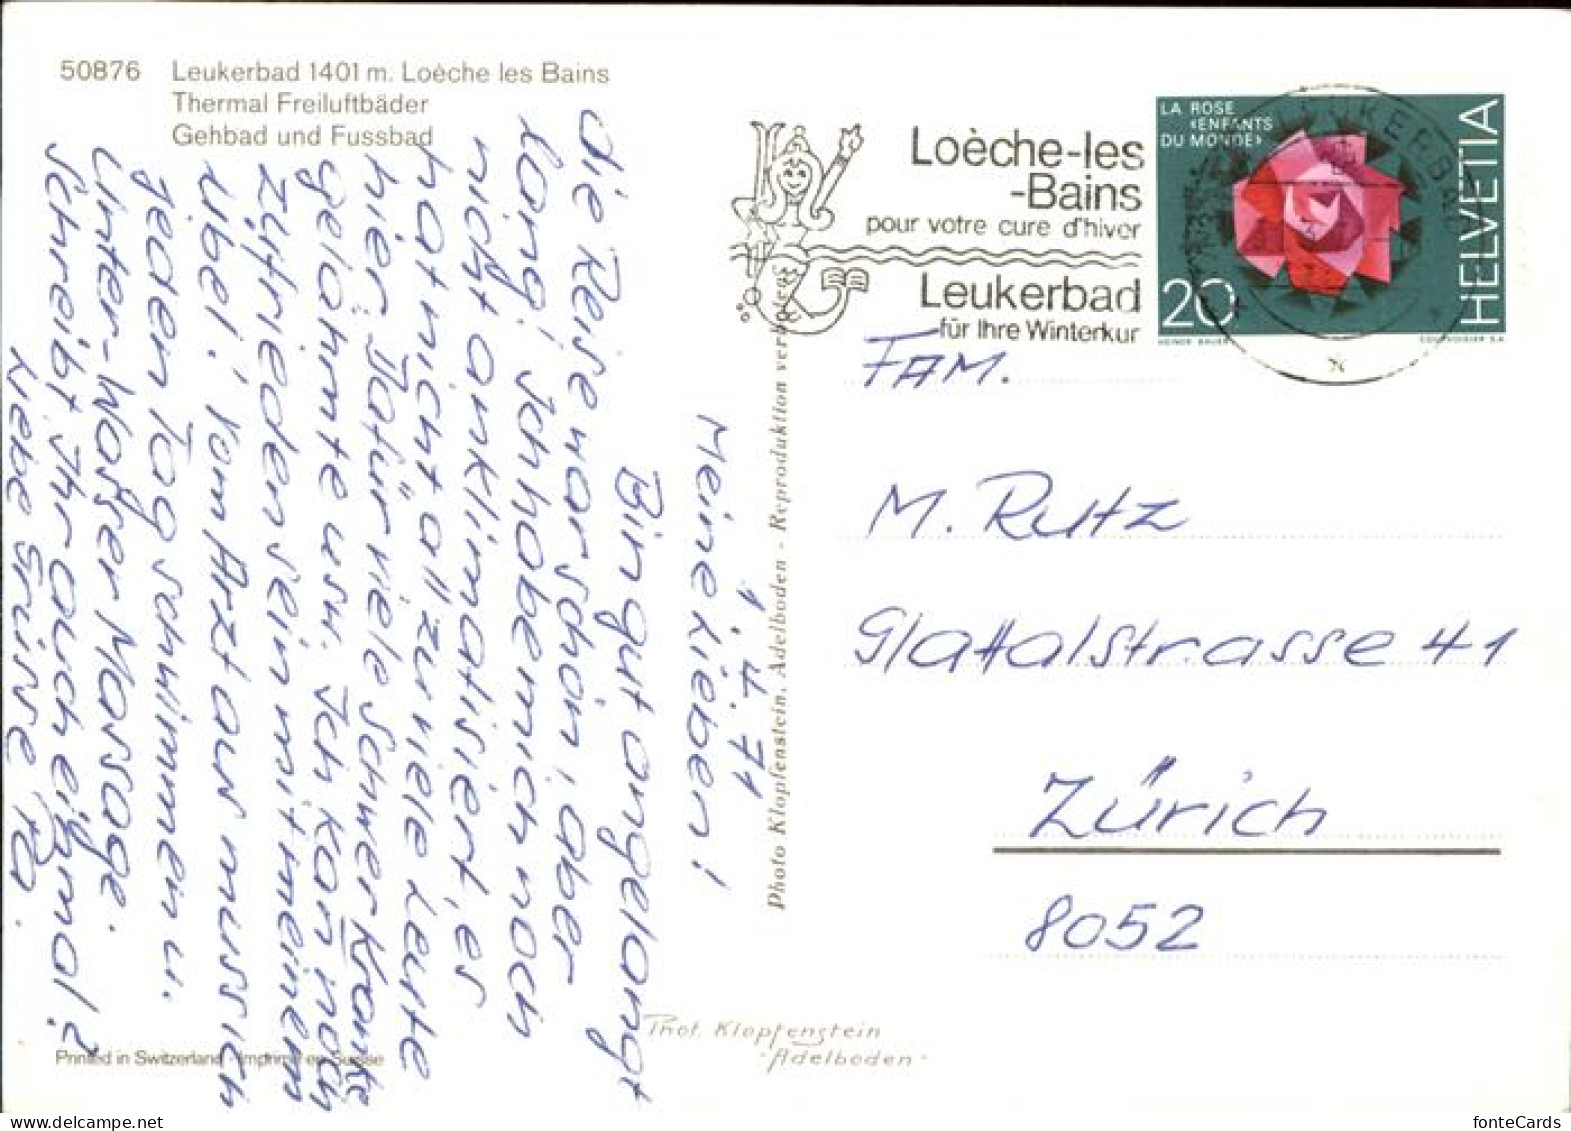 50876 Leukerbad 1401 m. Loèche les Bains
Thermal Freiluftbäder
Gehbad und Fussbad
1.4.71
Meine Lieben!
Bin gut angelangt
die Reise war schön, aber
lang! Ich habe mich noch
nicht anklimatisiert, es
hat nicht allzuviele Leute
hier. Dafür viele schwer Kranke
gelähmte usw. Ich kan noch
zufrieden sein mit meinem
übel! Vom Arzt aus muss ich
jeden Tag schwimmen u.
Unter-Wasser Massage.
Schreibt Ihr auch einmal?
Liebe Grüsse
Photo Klopfenstein, Adelboden - Reproduktion verboten
Loèche-les
-Bains
pour votre cure d'hiver
Leukerbad
für Ihre Winterkur
LA ROSE
«ENFANTS
DU MONDE»
20
HELVETIA
HEINER BAUER
COURVOISIER S.A.
LEUKERBAD
FAM.
M. Rutz
Glattalstrasse 41
Zürich
8052
Phot. Klopfenstein
-Adelboden-
Printed in Switzerland - Imprimé en Suisse
fonteCards